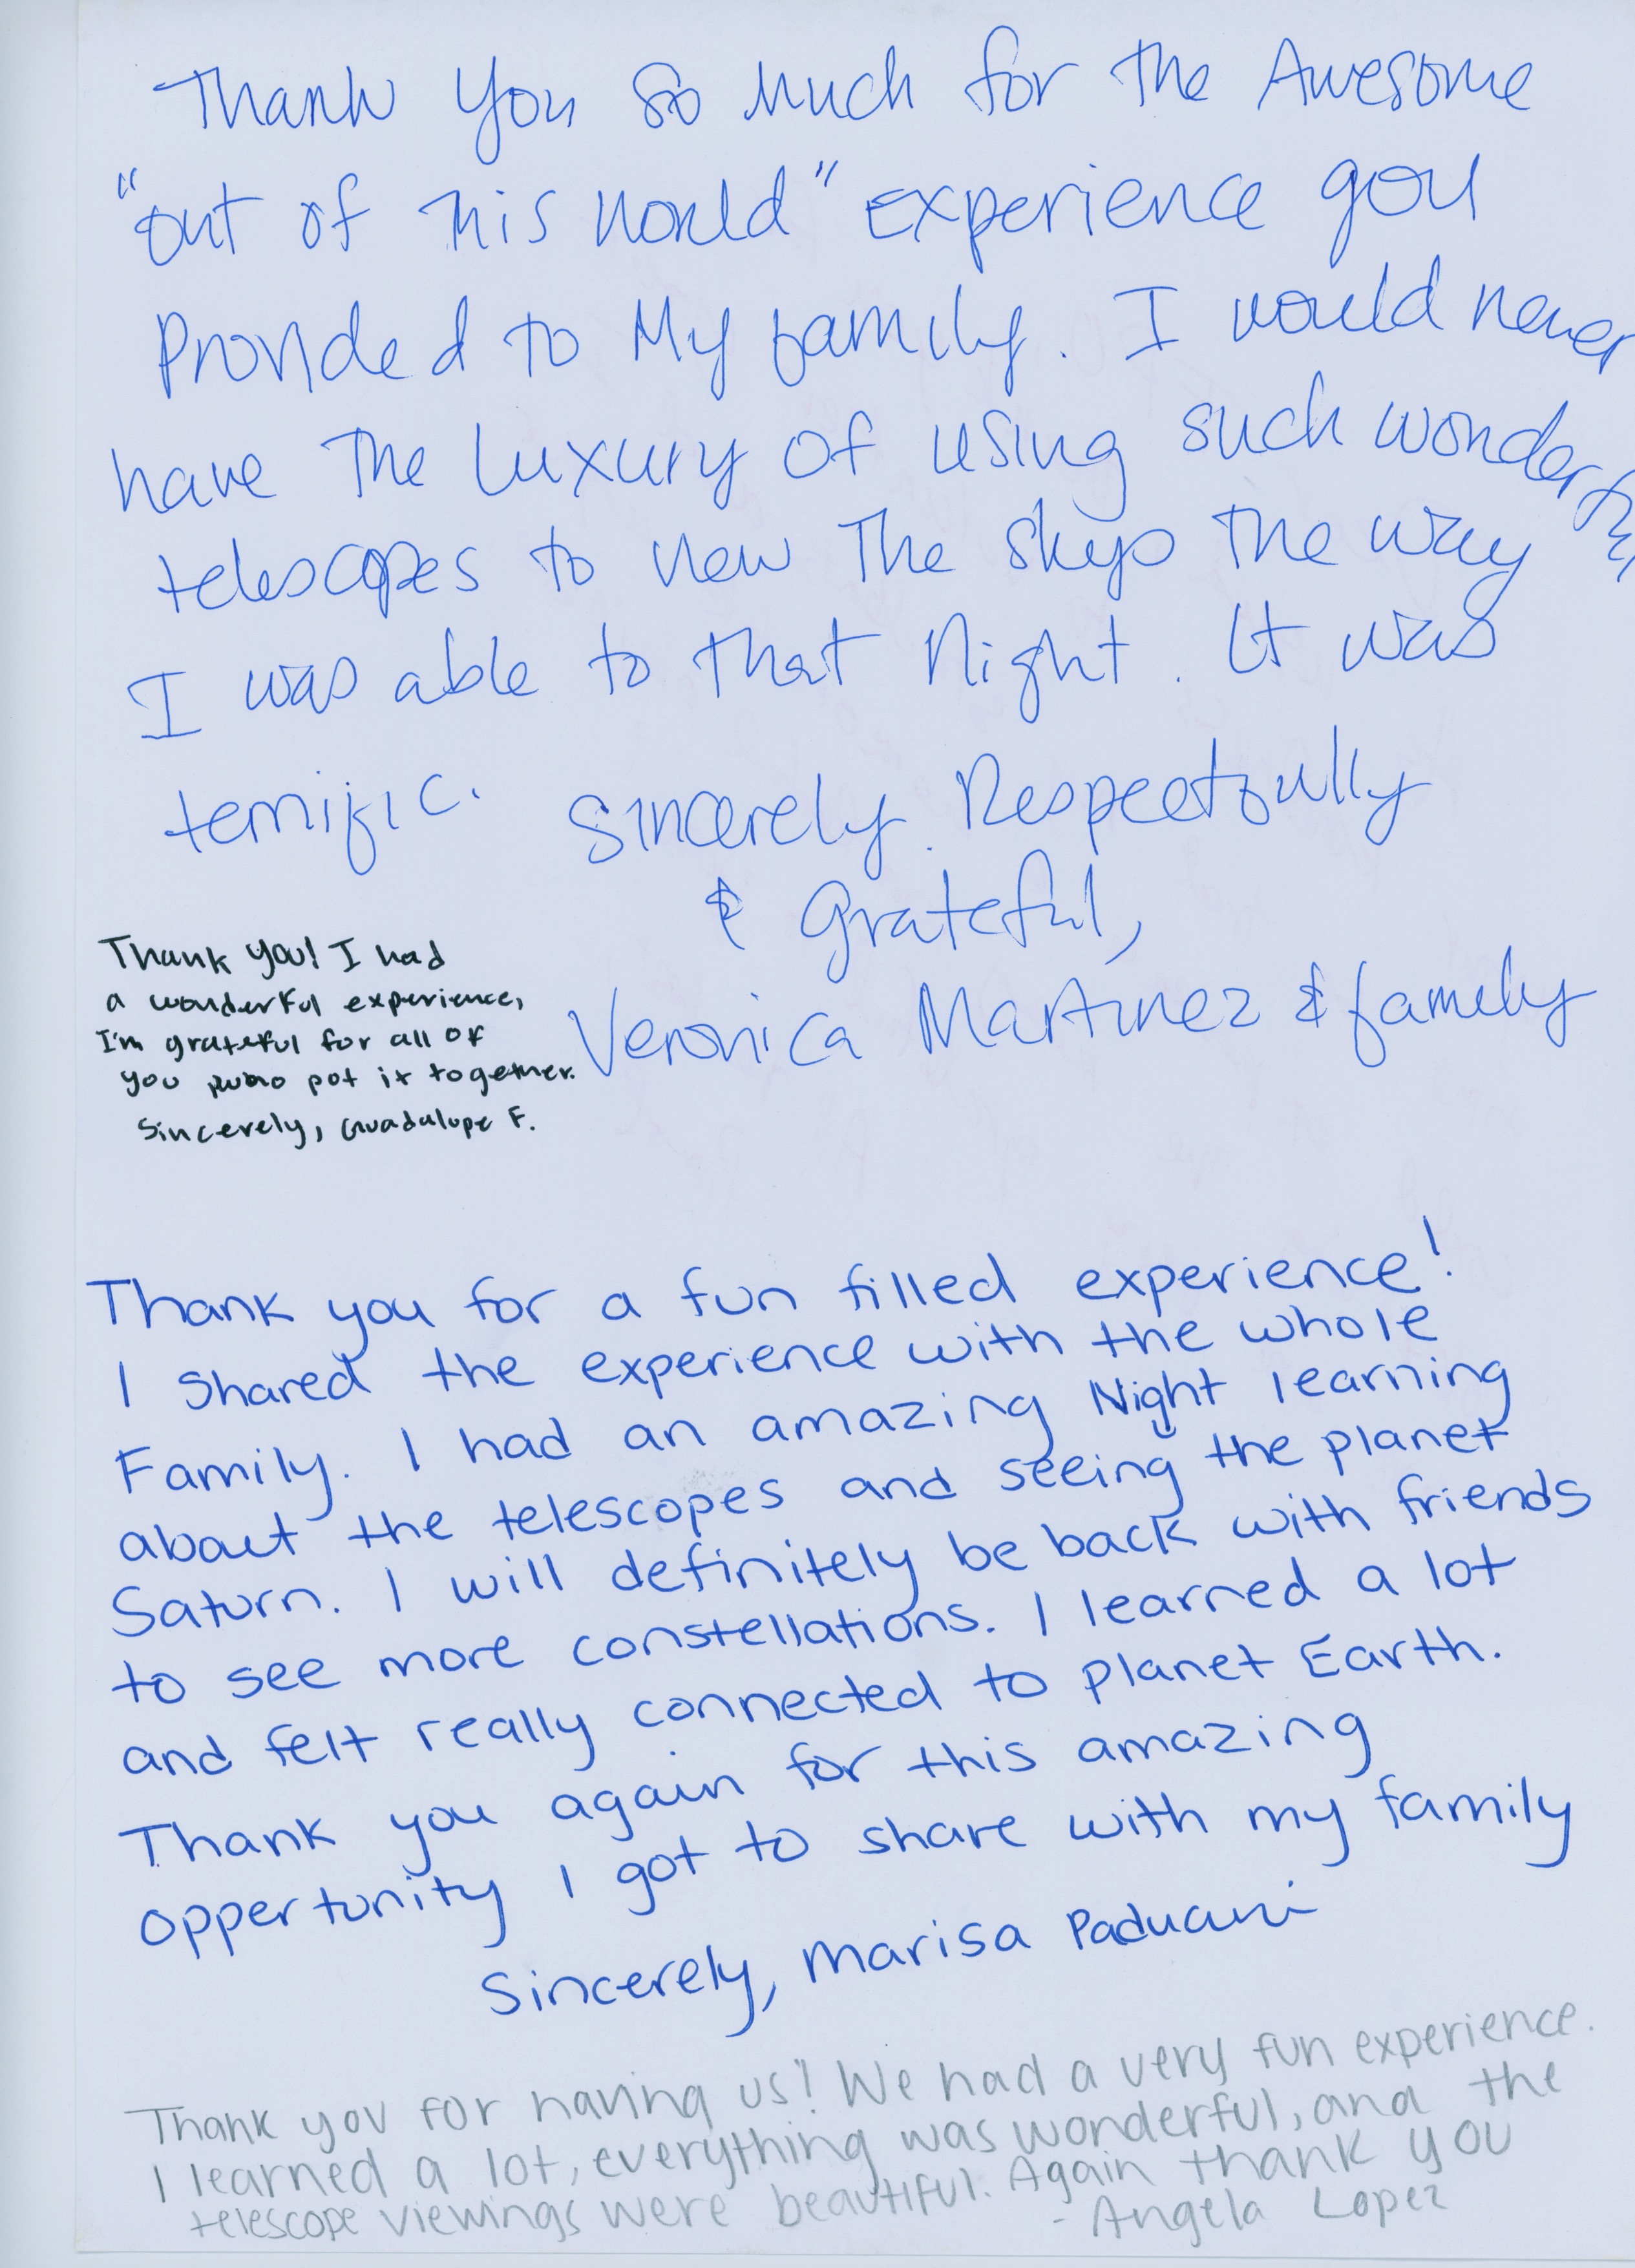 Thank you so Much for the Awesome
"out of this world" experience you
Provided to My family. I would never
have the Luxury of using such wonderful
telescopes to view The skys the way
I was able to that Night. It was
terrific. Sincerely, Respectfully
& Grateful,
Veronica Martinez & family
Thank you! I had
a wonderful experience,
I'm grateful for all of
you who put it together.
Sincerely, Guadalupe F.
Thank you for a fun filled experience!
I shared the experience with the whole
Family. I had an amazing Night learning
about the telescopes and seeing the planet
Saturn. I will definitely be back with friends
to see more constellations. I learned a lot
and felt really connected to planet Earth.
Thank you again for this amazing
oppertunity I got to share with my family
Sincerely, Marisa Paduani
Thank you for having us! We had a very fun experience.
I learned a lot, everything was wonderful, and the
telescope viewings were beautiful. Again thank you
- Angela Lopez